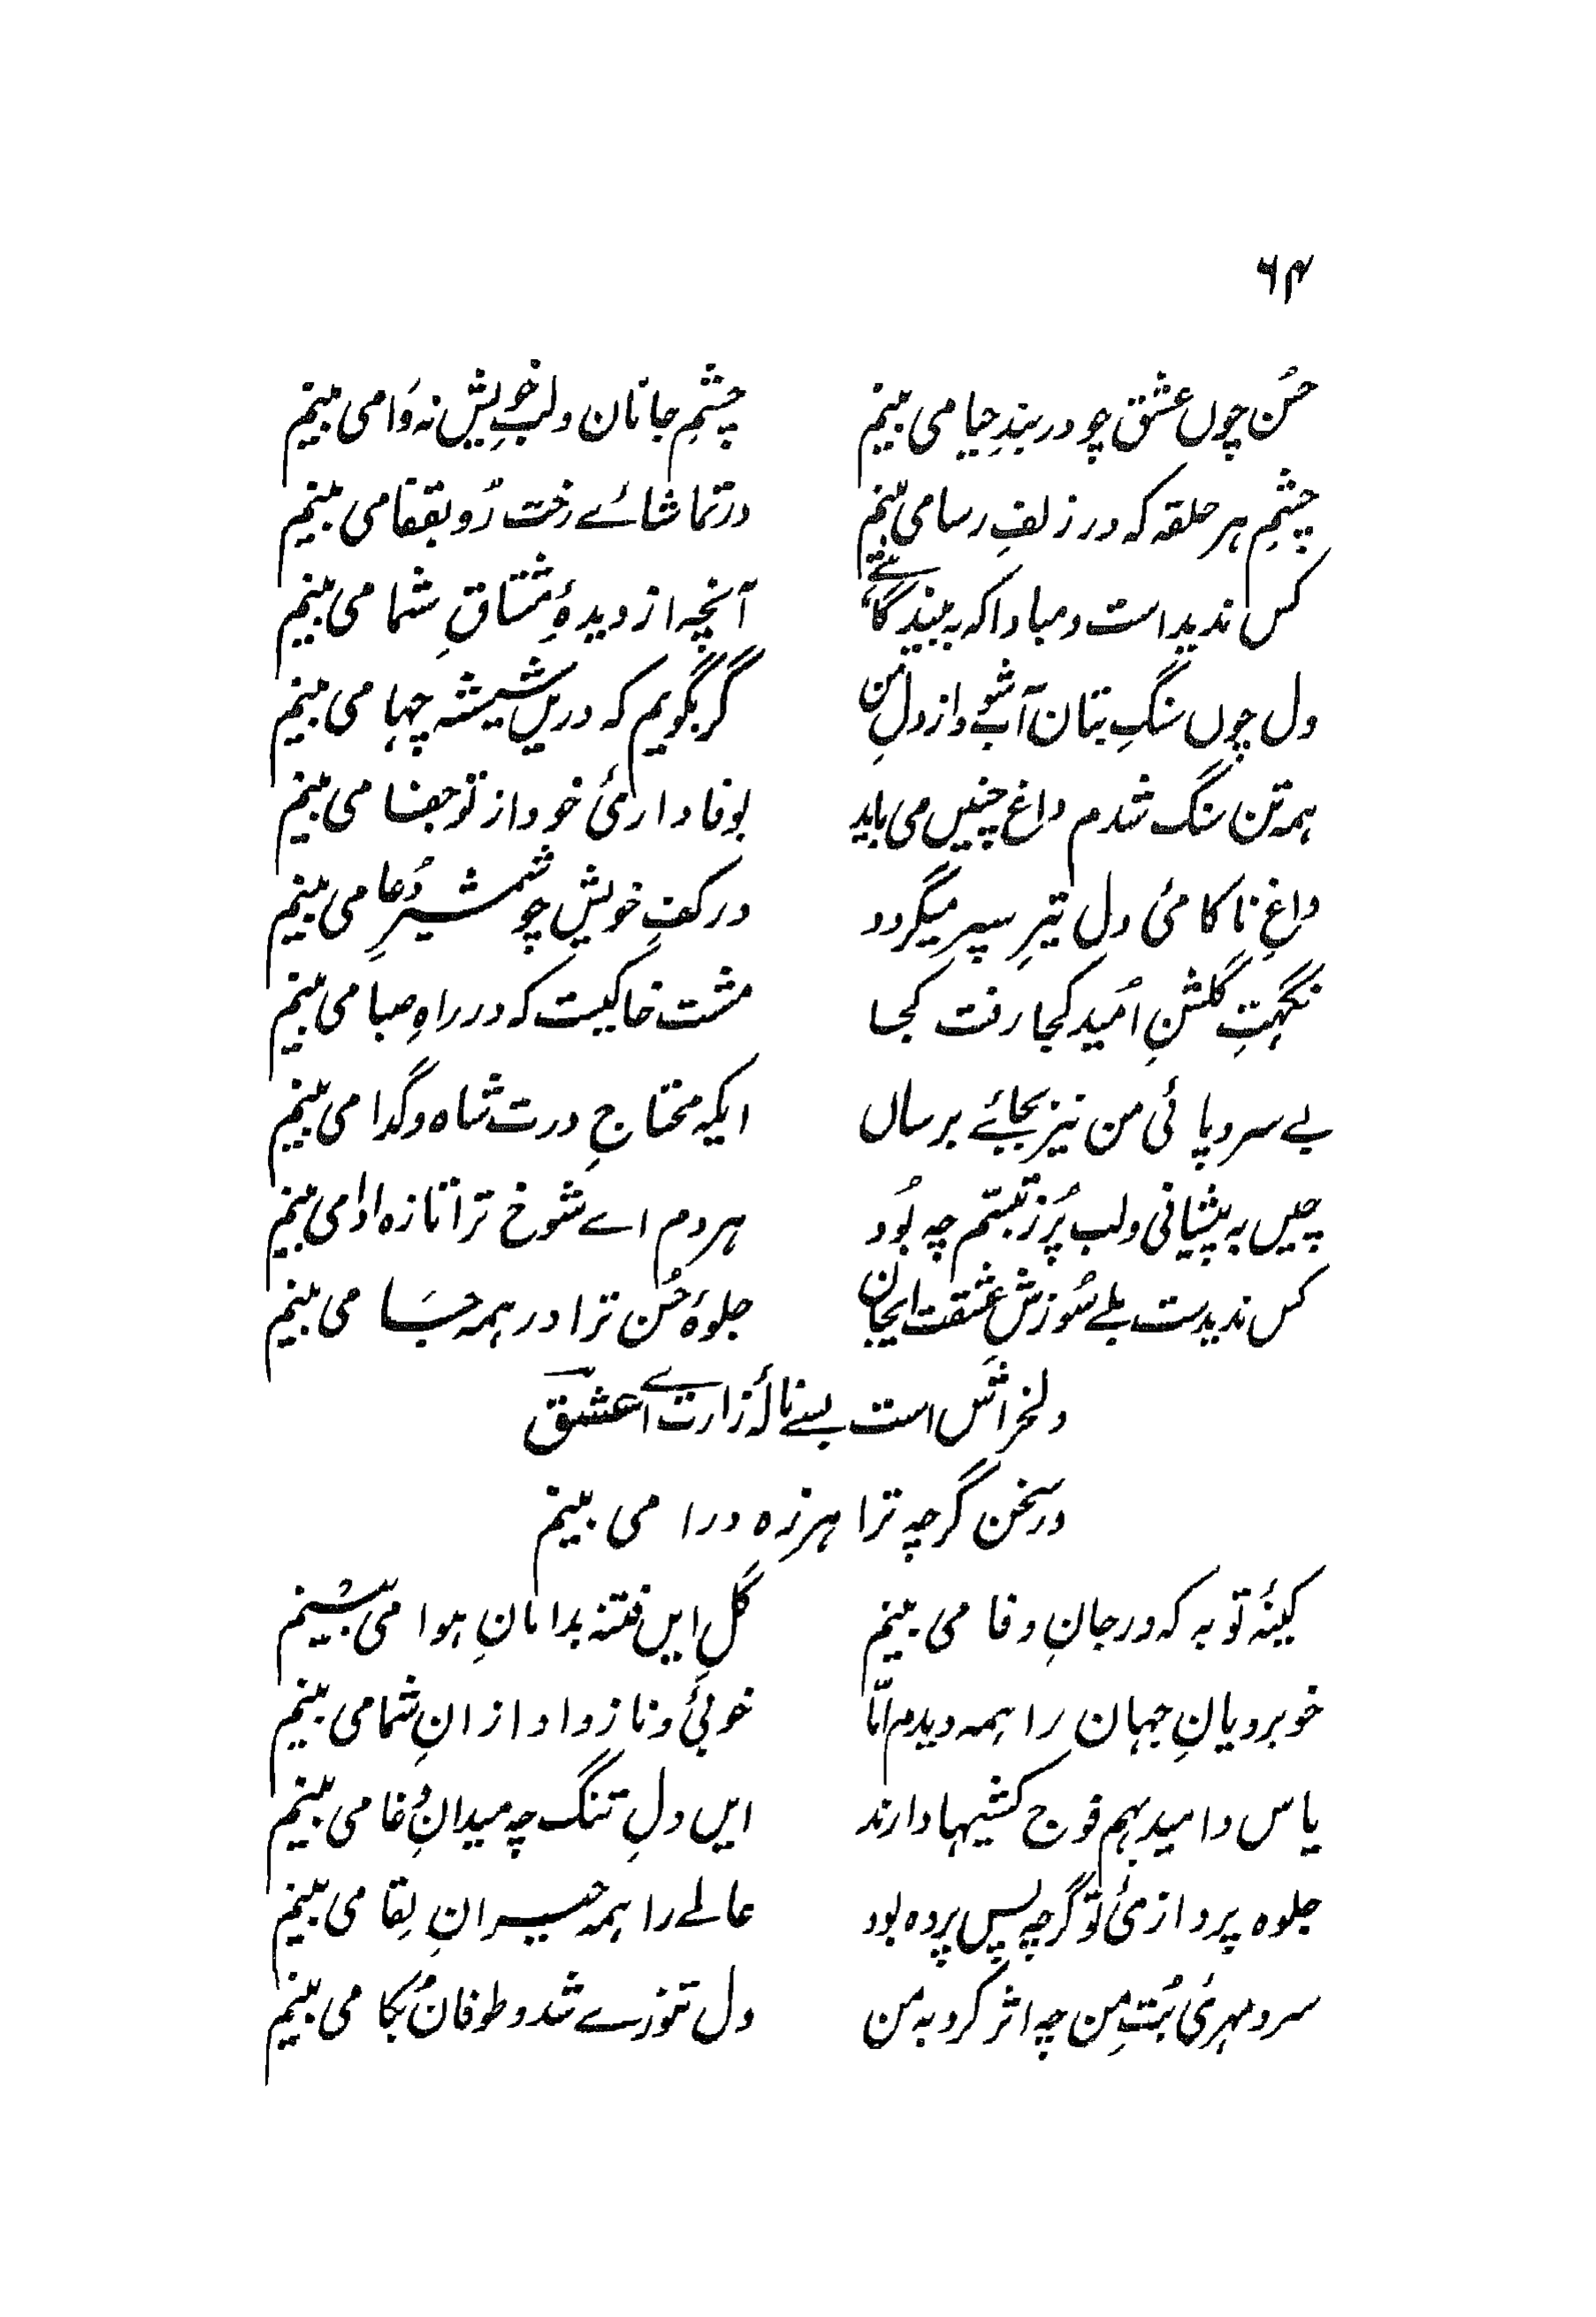 ۶۴
حُسن چوں عشق چو در بندِ حیا می بینم چشمِ جانان و لبِ خویش نہ وَا می بینم
چشمِ ہر حلقہ کہ در زلفِ رسا می بینم در تماشائے رخت رُو بقفا می بینم
کس ندید است و مبادا کہ بہ بیند گاہے آنچہ از دیدہٴ مشتاقِ شما می بینم
دل چوں سنگِ بتان آب شود از دلِ من گر بگویم کہ دریں شیشہ چہا می بینم
ہمہ تن سنگ شدم داغ چنیں می باید بوفا داریٔ خود از تو جفا می بینم
داغِ ناکامیٔ دل تیرِ سپر میگردد در کفِ خویش چو شمشیرِ دُعا می بینم
نگہتِ گلشنِ امُید کجا رفت کجا مشت خاکیست کہ در راہِ صبا می بینم
بے سر و پائی من نیز بجائے برساں ایکہ محتاجِ درت شاہ و گدا می بینم
چیں بہ پیشانی و لب پُر ز تبسّم چہ بُود ہر دم اے شوخ ترا تازہ ادا می بینم
کس ندیدست بلے سُوزشِ عشقت ایجان جلوہٴ حُسن ترا در ہمہ جَا می بینم
دلخراش است بسے نالۂ زارت اے عشق
در سخن گرچہ ترا ہرزہ درا می بینم
کینۂ تو بہ کہ در جانِ وفا می بینم گلِ ایں فتنہ بدامانِ ہوا می بینم
خوبرویانِ جہان را ہمہ دیدم امّا خوبیٔ و ناز و ادا از انِ شما می بینم
یاس و امید بہم فوج کشیہا دارند ایں دلِ تنگ چہ میدانِ وُغا می بینم
جلوہ پردازیٔ تو گرچہ پسِ پردہ بود عالمے را ہمہ حیرانِ لِقا می بینم
سرد مہریٔ بُتِ من چہ اثر کرد بہ من دل تنورے شد و طوفانِ بُکا می بینم